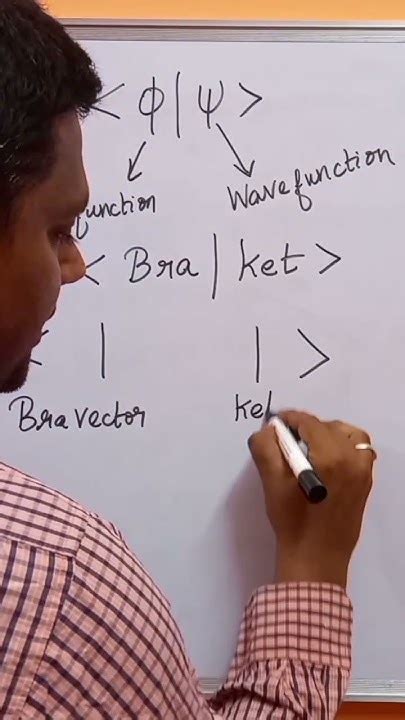 < ϕ | ψ >
function Wavefunction
< Bra | ket >
< | | >
Bra vector Ket